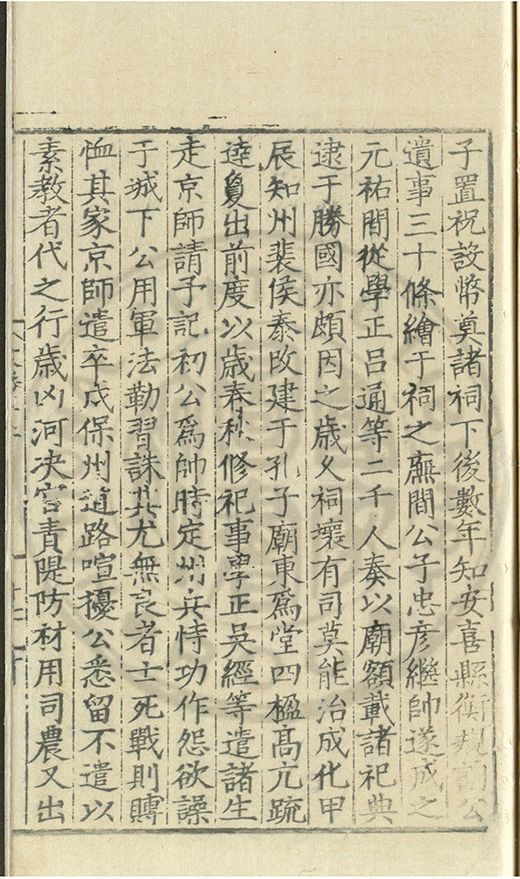 子置祝設幣奠諸祠下後數年知安喜縣衡規訪公
遺事三十條繪于祠之廡間公子忠彥繼帥遂成之
元祐間從學正呂通等二千人奏以廟額載諸祀典
逮于勝國亦頗因之歲久祠壞有司莫能治成化甲
辰知州裴侯泰改建于孔子廟東爲堂四楹高亢疏
逵夐出前度以歲春秋修祀事學正吳經等遣諸生
走京師請予記初公爲帥時定州兵恃功作怨欲譟
于城下公用軍法勒習誅其尤無良者士死戰則賻
恤其家京師遣卒戍保州道路喧擾公悉留不遣以
素教者代之行歲凶河决官責隄防材用司農又出